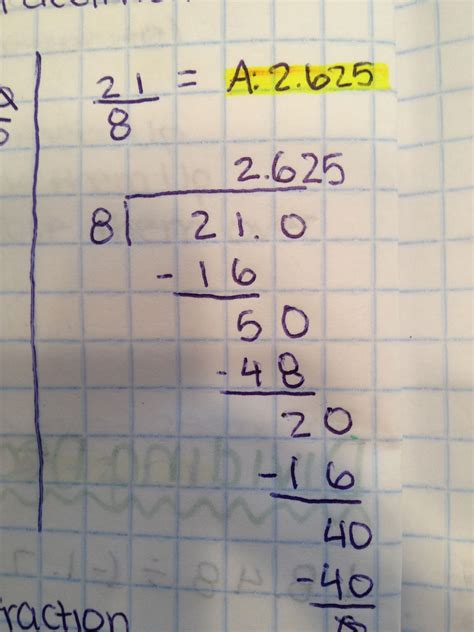 21/8 = A: 2.625
2.625
8 21.0
-16
50
-48
20
-16
40
-40
0
raction